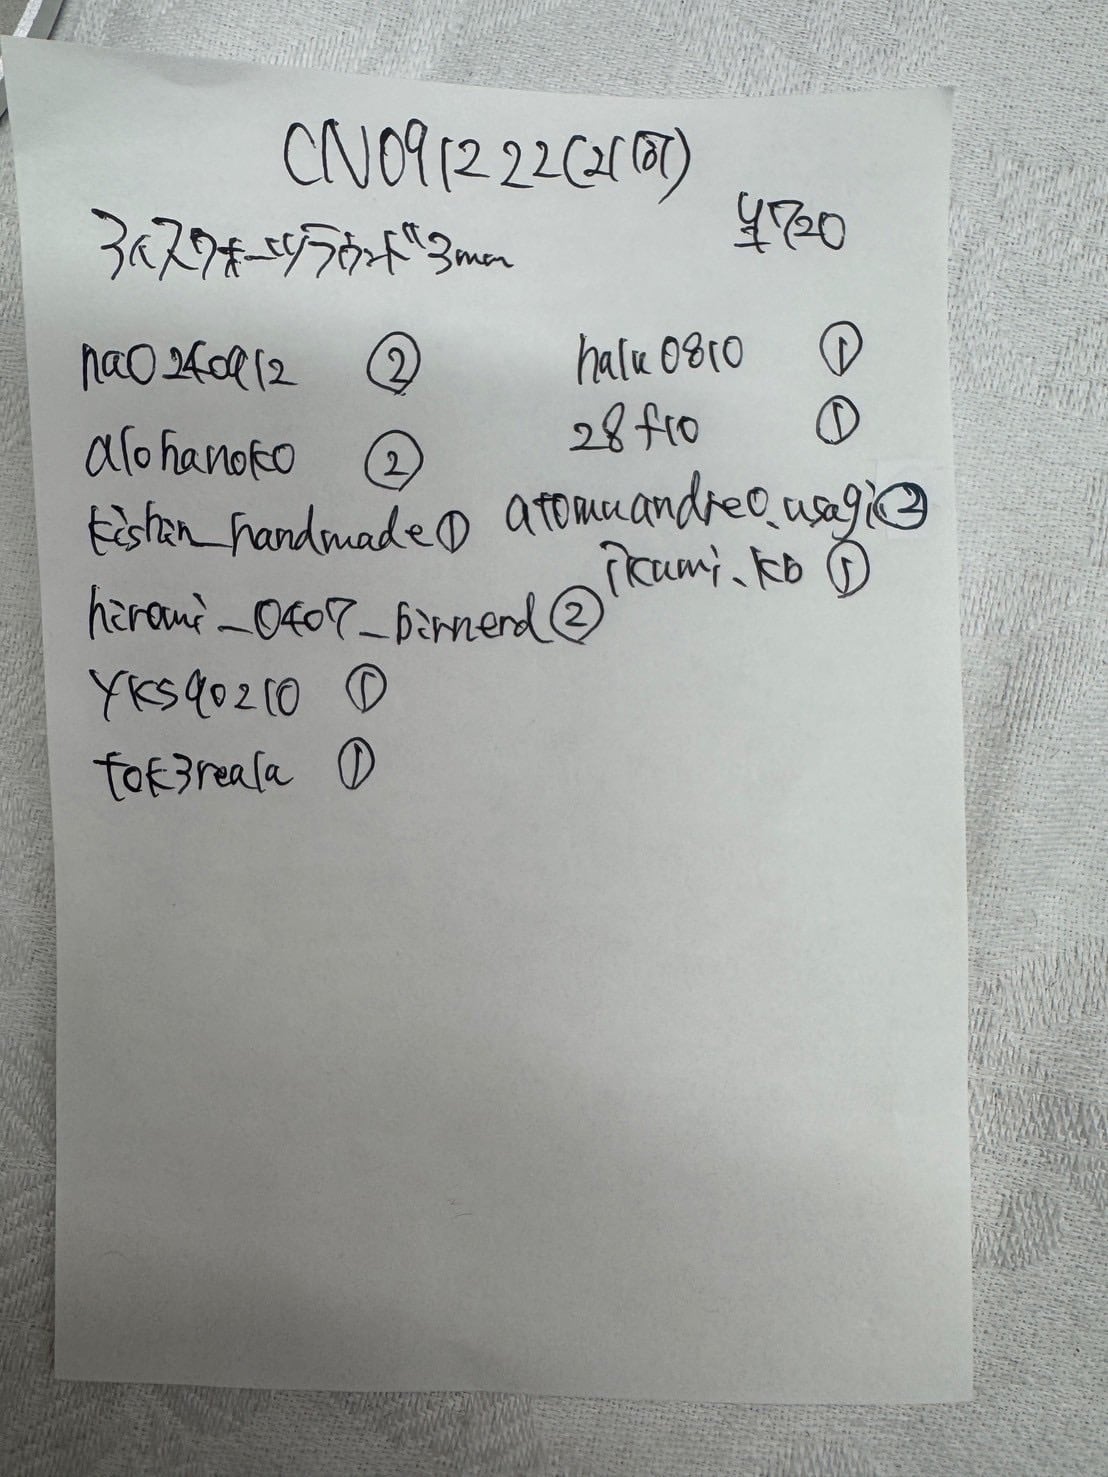 CN091222(21面)
¥720
アイスクォーツラウンド3mm
nao240912 ②
alohanoko ②
kishin_handmade ①
hiromi_0407_birnerd ②
yks90210 ①
tok3reala ①
halu0810 ①
28f10 ①
atomuandreo.usagi ②
ikumi.kb ①